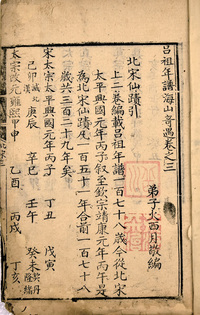 呂祖年譜海山奇遇卷之三
弟子火西月敬編
北宋仙蹟引
上二卷編載呂祖年譜一百七十八歲今從北宋
太平興國元年丙子叙至欽宗靖康元年丙午是
為北宋仙蹟凡一百五十一年合前一百七十八
歲共三百二十九年矣
宋太宗太平興國元年丙子 丁丑 戊寅
己卯 庚辰 辛巳 壬午 癸未
太宗改元雍熙甲申 乙酉 丙戌 丁亥